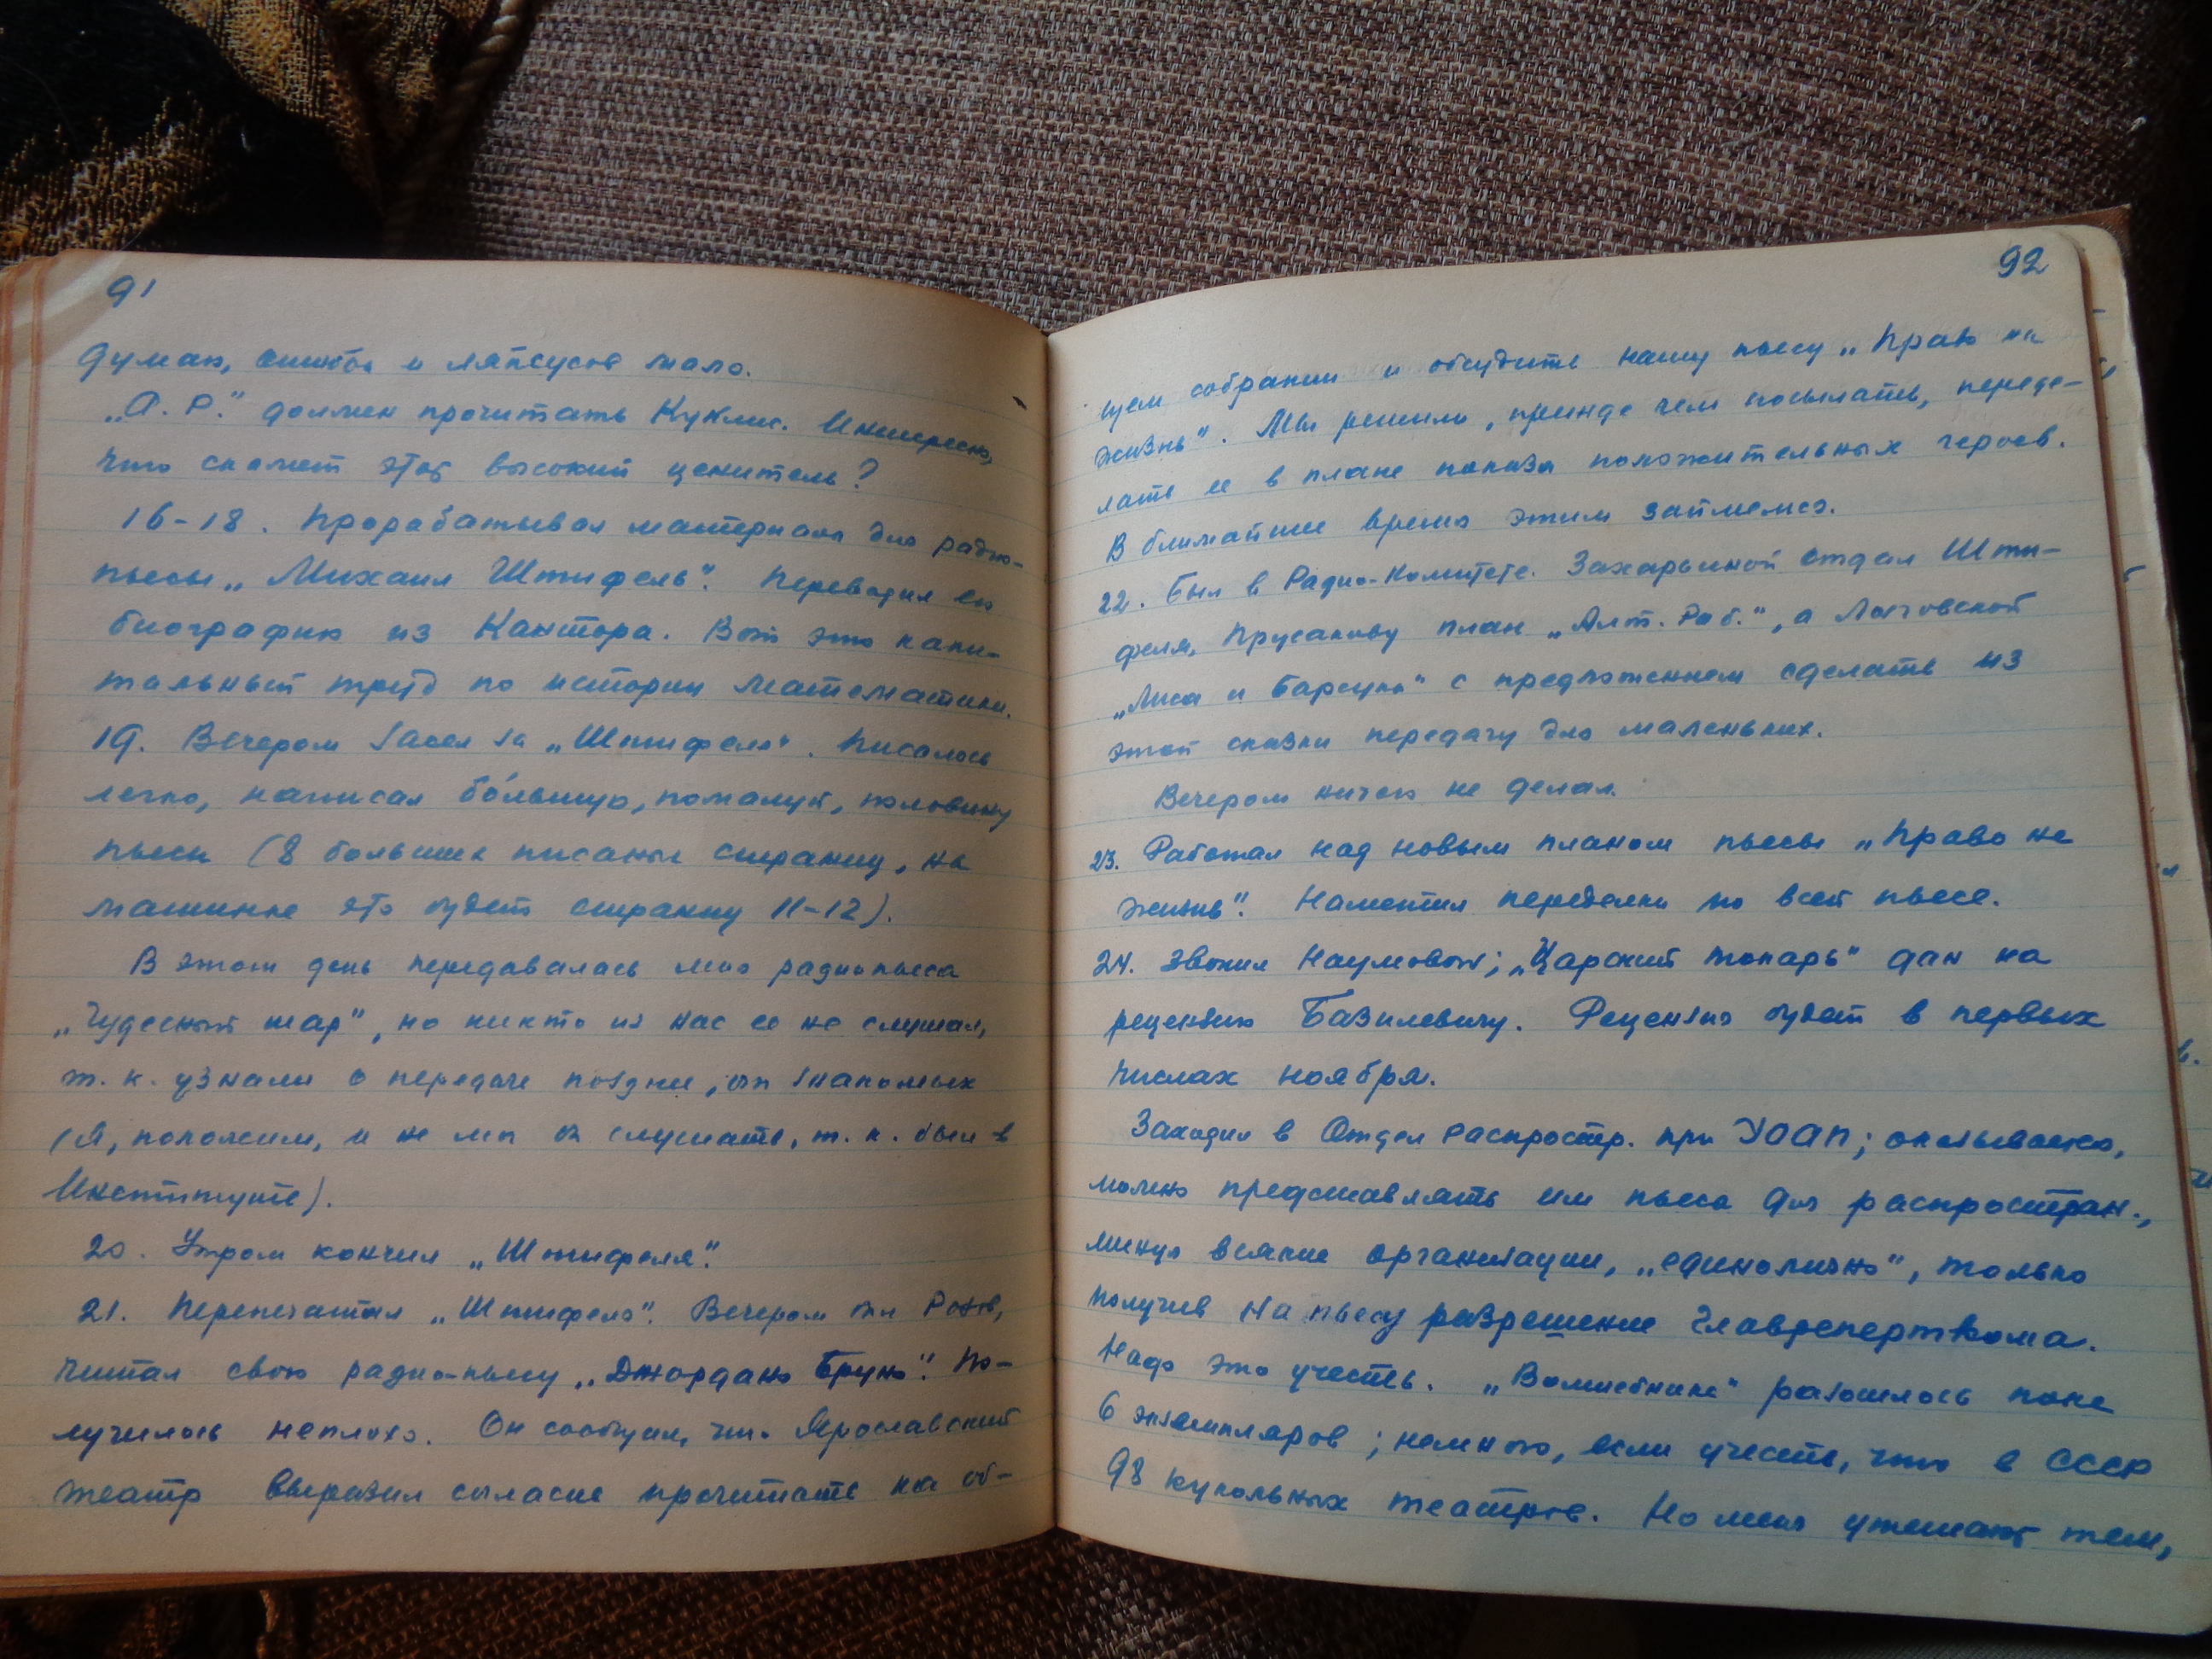 91
думаю, ошибок и ляпсусов мало.
„А. Р." должен прочитать Куклис. Интересно,
что скажет этот высокий ценитель?
16-18. Прорабатывал материалы для радио-
пьесы „Михаил Штифель". Переводил его
биографию из Кантора. Вот это капи-
тальный труд по истории математики.
19. Вечером засел за „Штифеля". Писалось
легко, написал бо́льшую, пожалуй, половину
пьесы (8 больших писаных страниц, на
машинке это будет страниц 11-12).
В этот день передавалась моя радиопьеса
„Чудесный шар", но никто из нас ее не слушал,
т. к. узнали о передаче позднее, от знакомых
(я, положим, и не мог ее слушать, т. к. был в
Институте).
20. Утром кончил „Штифеля".
21. Перепечатал „Штифеля". Вечером был Розов,
читал свою радио-пьесу „Джордано Бруно". По-
лучилось неплохо. Он сообщил, что Ярославский
театр выразил согласие прочитать на об-
92
щем собрании и обсудить нашу пьесу „Право на
жизнь". Мы решили, прежде чем посылать, переде-
лать ее в плане показа положительных героев.
В ближайшее время этим займемся.
22. Был в Радио-Комитете. Захарьиной отдал Шти-
феля, Прусакову план „Алт. Роб.", а Логовской
„Лиса и Барсуки" с предложением сделать из
этой сказки передачу для маленьких.
Вечером ничего не делал.
23. Работал над новым планом пьесы „Право на
жизнь". Наметил переделки по всей пьесе.
24. Звонил Наумовой; „Царский токарь" дан на
рецензию Базилевичу. Рецензия будет в первых
числах ноября.
Заходил в Отдел распростр. при УОАП; оказывается,
можно представлять им пьесы для распростран.,
минуя всякие организации, „единолично", только
получив на пьесу разрешение Главреперткома.
Надо это учесть. „Волшебника" разошлось пока
6 экземпляров; немного, если учесть, что в СССР
98 кукольных театров. Но меня утешают тем,